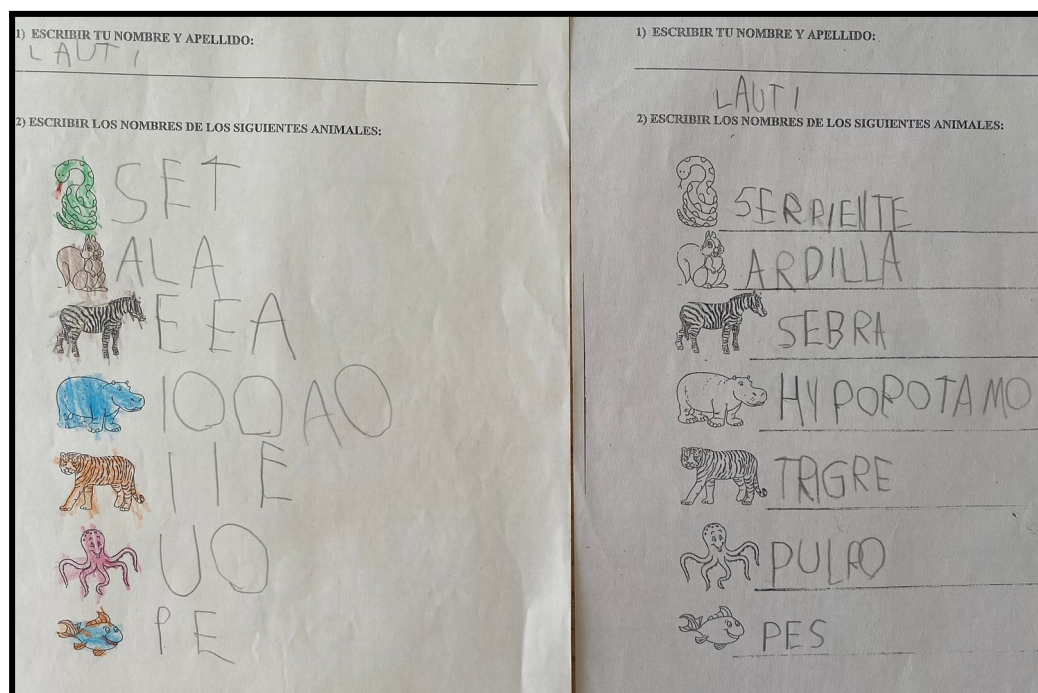 1) ESCRIBIR TU NOMBRE Y APELLIDO:
LAUTI
2) ESCRIBIR LOS NOMBRES DE LOS SIGUIENTES ANIMALES:
SET
ALA
EEA
IOOAO
IIE
UO
PE
1) ESCRIBIR TU NOMBRE Y APELLIDO:
LAUTI
2) ESCRIBIR LOS NOMBRES DE LOS SIGUIENTES ANIMALES:
SERPIENTE
ARDILLA
SEBRA
HYPOPOTAMO
TRIGRE
PULPO
PES